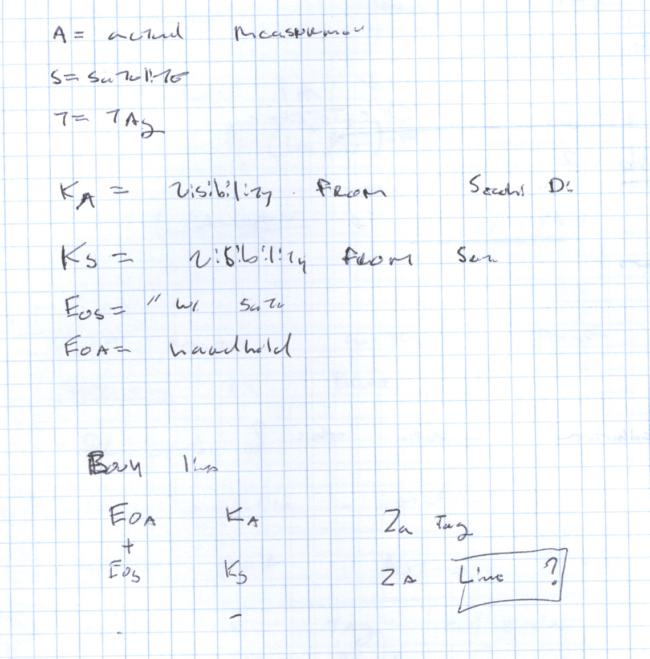 A = actual measurement
S = Satellite
T = TAg
KA = visibility From Secchi Di
KS = visibility From Sa
EOS = " w/ Sate
EOA = handheld
line
EOA KA Za Tag
+
EOS KS ZA Line ?
-